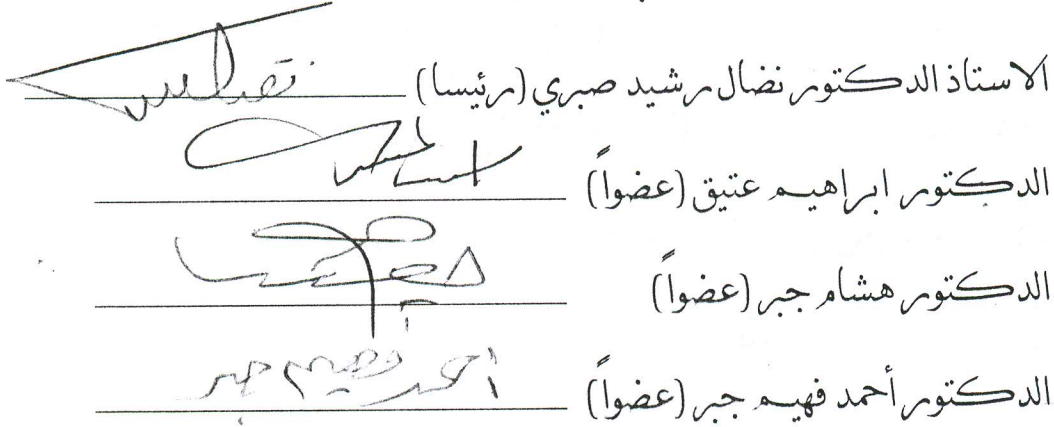 الاستاذ الدكتور نضال رشيد صبري (رئيسا)
الدكتور ابراهيم عتيق (عضواً)
الدكتور هشام جبر (عضواً)
الدكتور أحمد فهيم جبر (عضواً) أحمد فهيم جبر